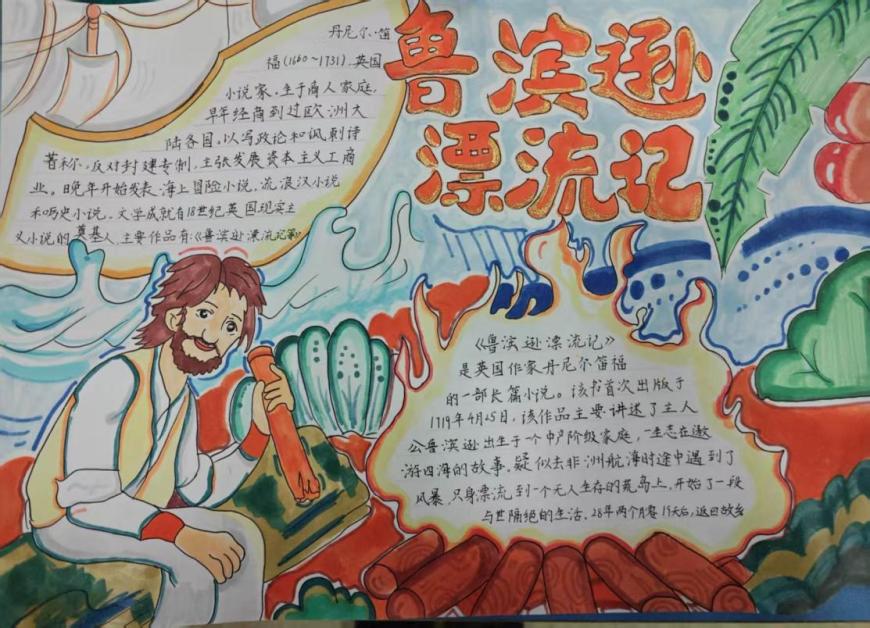 鲁滨逊
漂流记
丹尼尔·笛
福(1660~1731).英国
小说家。生于商人家庭,
早年经商到过欧洲大
陆各国,以写政论和讽刺诗
著称,反对封建专制,主张发展资本主义工商
业。日晚年开始发表海上冒险小说,流浪汉小说
和历史小说。文学成就有18世纪英国现实主
义小说的奠基人,主要作品有:《鲁滨逊漂流记等》
《鲁滨逊漂流记》
是英国作家丹尼尔笛福
的一部长篇小说。该书首次出版于
1719年4月25日,该作品主要讲述了主人
公鲁滨逊出生于一个中产阶级家庭,一生志在遨
游四海的故事。疑似去非洲航海时途中遇到了
风暴,只身漂流到一个无人生存的荒岛上,开始了一段
与世隔绝的生活,28年两个月零19天后,返回故乡